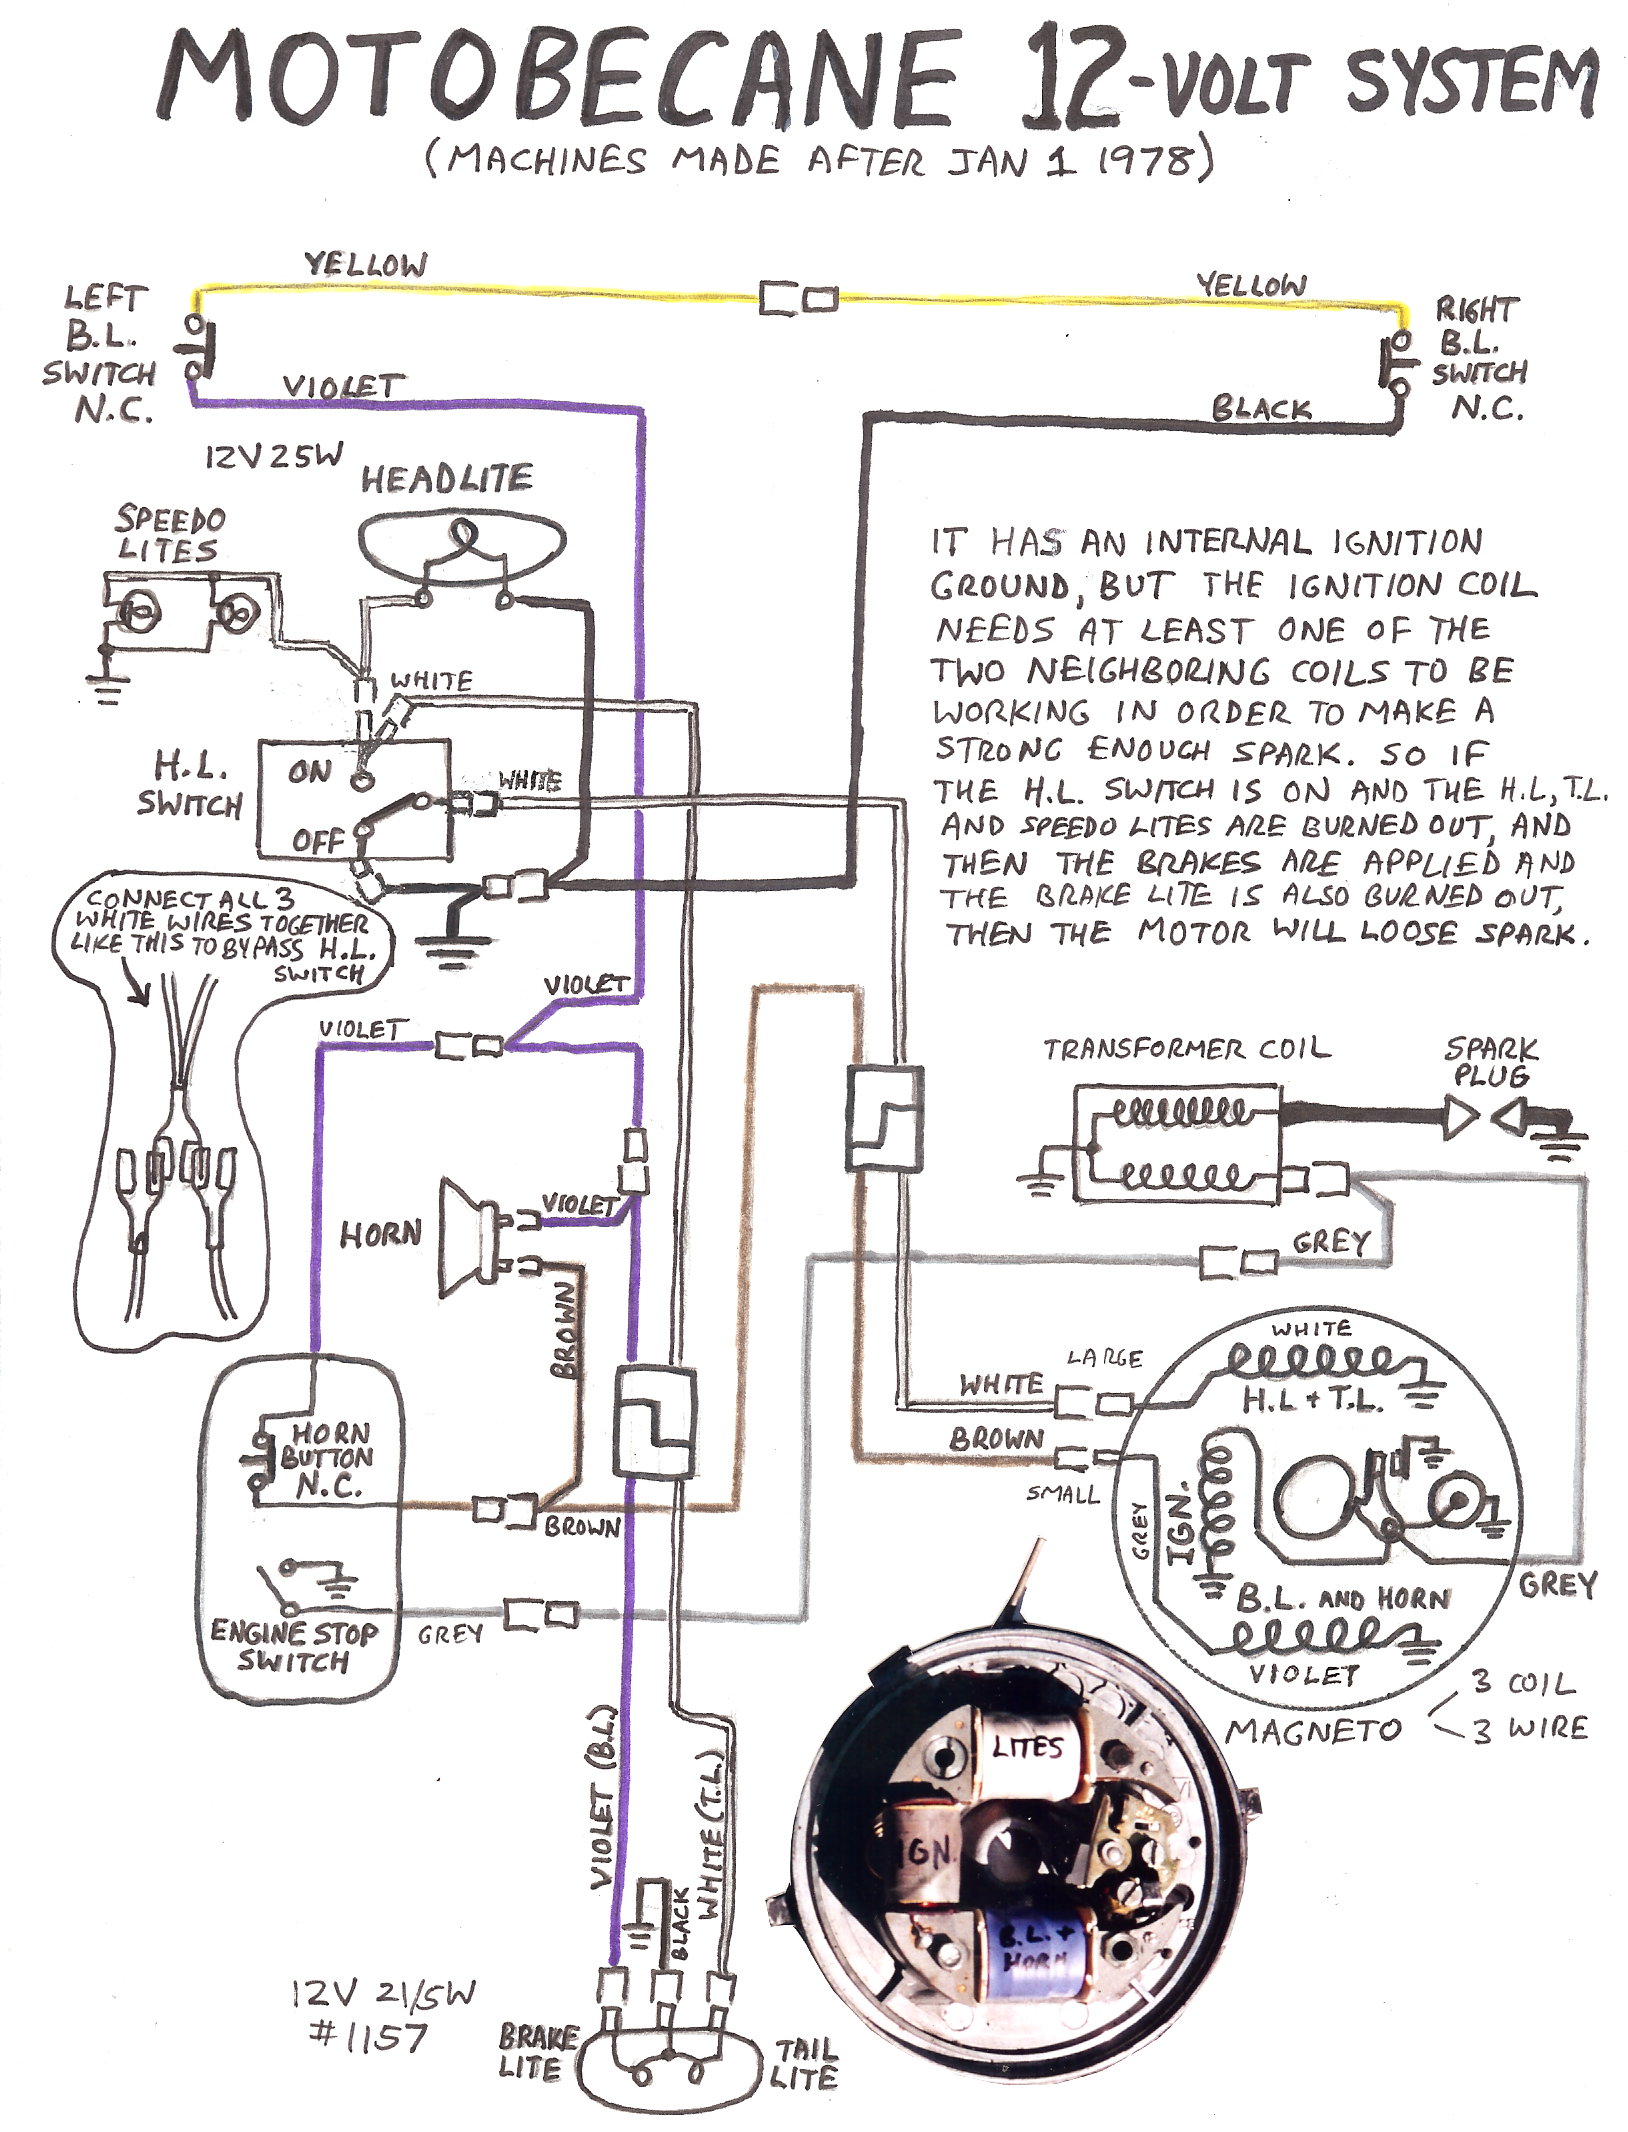 MOTOBECANE 12-VOLT SYSTEM
(MACHINES MADE AFTER JAN 1 1978)
YELLOW
YELLOW
LEFT
B.L.
SWITCH
N.C.
RIGHT
B.L.
SWITCH
N.C.
VIOLET
BLACK
12V25W
HEADLITE
SPEEDO
LITES
WHITE
H.L.
SWITCH
ON
OFF
WHITE
IT HAS AN INTERNAL IGNITION
GROUND, BUT THE IGNITION COIL
NEEDS AT LEAST ONE OF THE
TWO NEIGHBORING COILS TO BE
WORKING IN ORDER TO MAKE A
STRONG ENOUGH SPARK. SO IF
THE H.L. SWITCH IS ON AND THE H.L, T.L.
AND SPEEDO LITES ARE BURNED OUT, AND
THEN THE BRAKES ARE APPLIED AND
THE BRAKE LITE IS ALSO BURNED OUT,
THEN THE MOTOR WILL LOOSE SPARK.
CONNECT ALL 3
WHITE WIRES TOGETHER
LIKE THIS TO BYPASS H.L.
SWITCH
VIOLET
VIOLET
TRANSFORMER COIL
SPARK
PLUG
HORN
VIOLET
BROWN
GREY
WHITE
LARGE
WHITE
H.L + T.L.
BROWN
SMALL
GREY
IGN.
HORN
BUTTON
N.C.
BROWN
GREY
B.L. AND HORN
VIOLET
ENGINE STOP
SWITCH
GREY
MAGNETO
3 COIL
3 WIRE
LITES
IGN.
B.L. +
HORN
VIOLET (B.L.)
BLACK
WHITE (T.L.)
12V 21/5W
#1157
BRAKE
LITE
TAIL
LITE